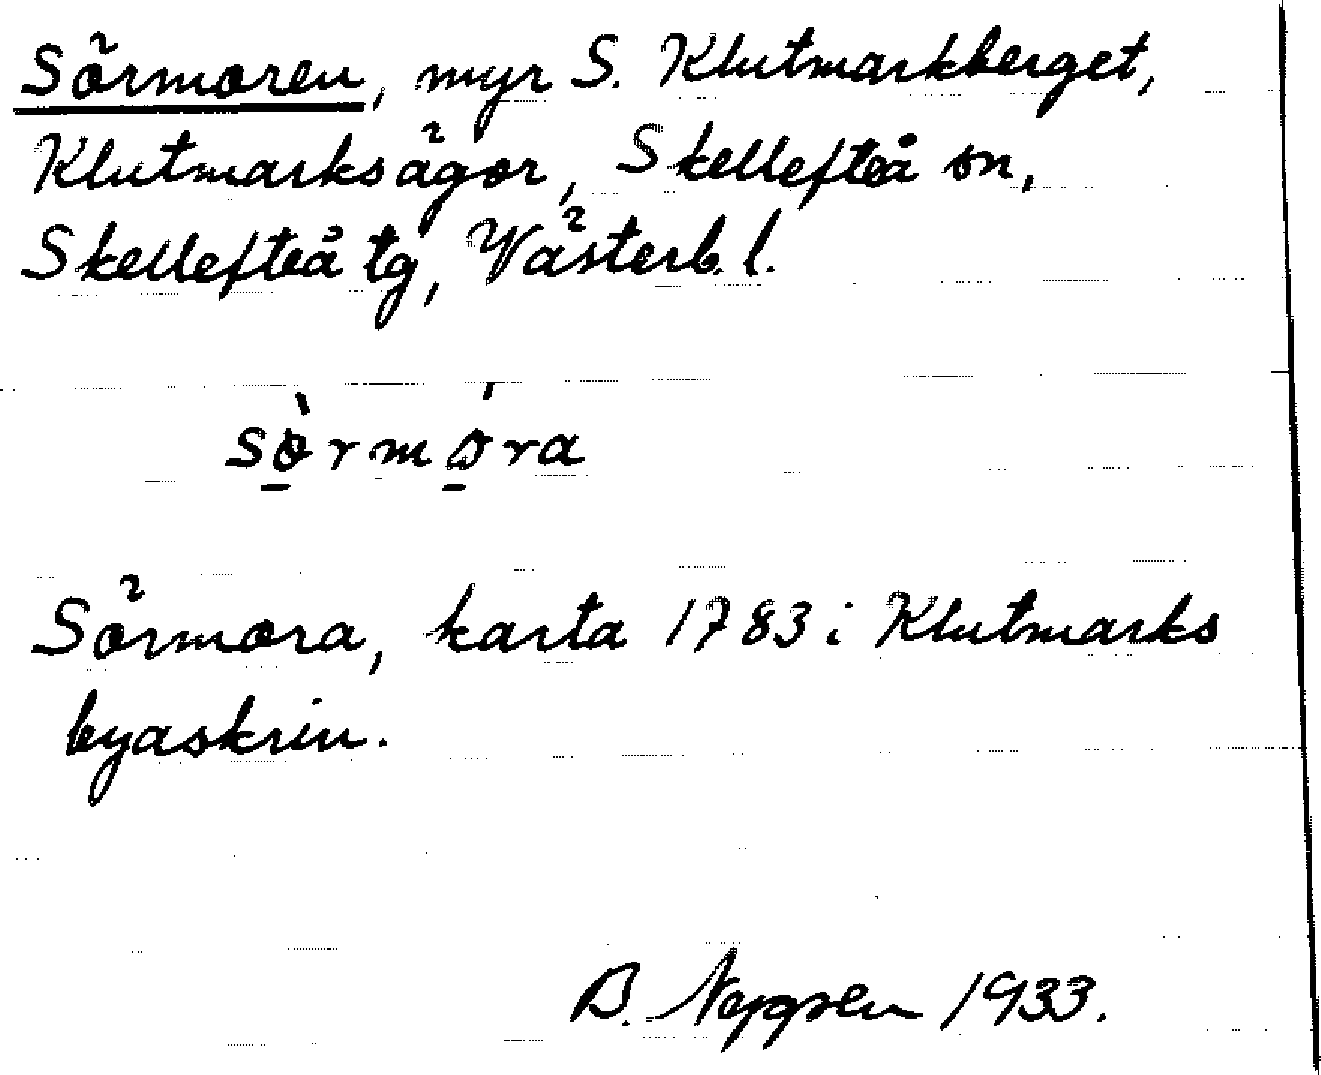 Sörmoren, myr S. Klutmarkberget,
Klutmarksägor, Skellefteå sn,
Skellefteå tg, Västerb. l.
sö̠̀rmó̠ra
Sörmora, karta 1783 i Klutmarks
byaskrin.
B. 1933.